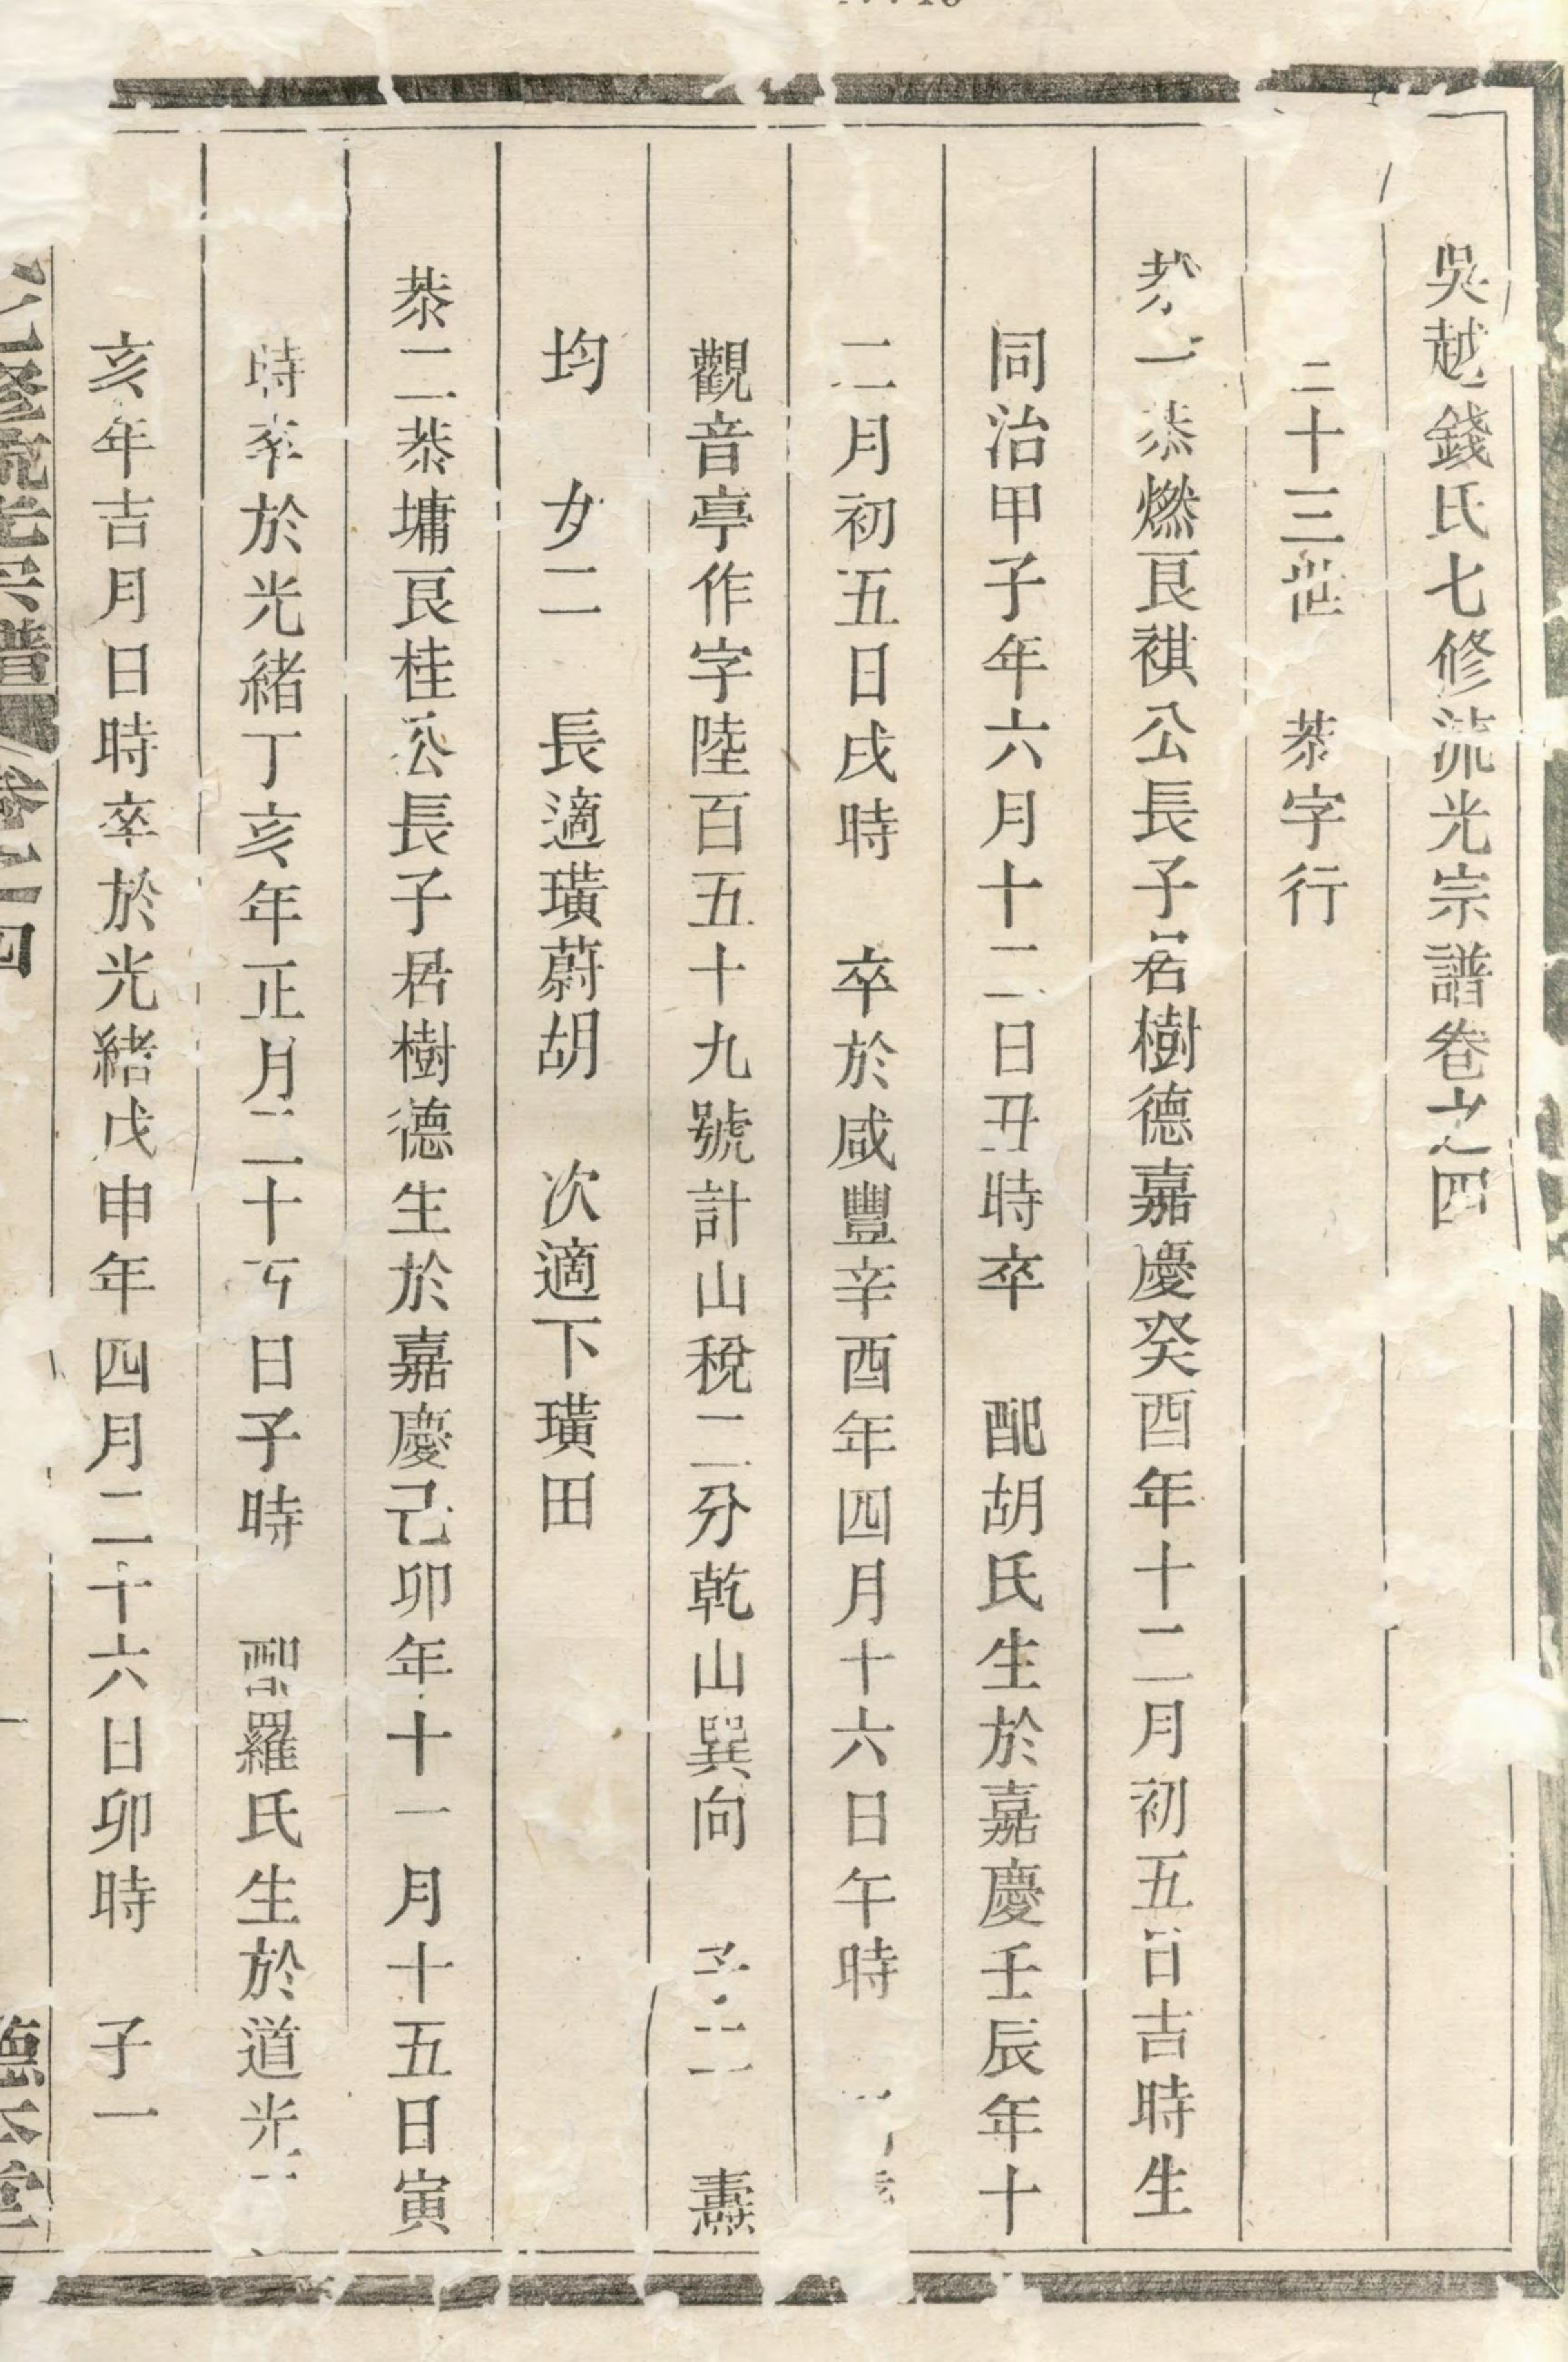 吳越錢氏七修流光宗譜卷之四
二十三世 恭字行
恭一恭燃艮祺公長子名樹德嘉慶癸酉年十二月初五日吉時生
同治甲子年六月十二日丑時卒 配胡氏生於嘉慶壬辰年十
二月初五日戌時 卒於咸豐辛酉年四月十六日午時
觀音亭作字陸百五十九號計山稅二分乾山巽向 子二 燾
均 女二 長適璜蔚胡 次適下璜田
恭二恭墉艮桂公長子君樹德生於嘉慶己卯年十一月十五日寅
時卒於光緒丁亥年正月二十日子時 配羅氏生於道光
亥年吉月日時卒於光緒戊申年四月二十六日卯時 子一
七修流光宗譜 卷之四 德本堂